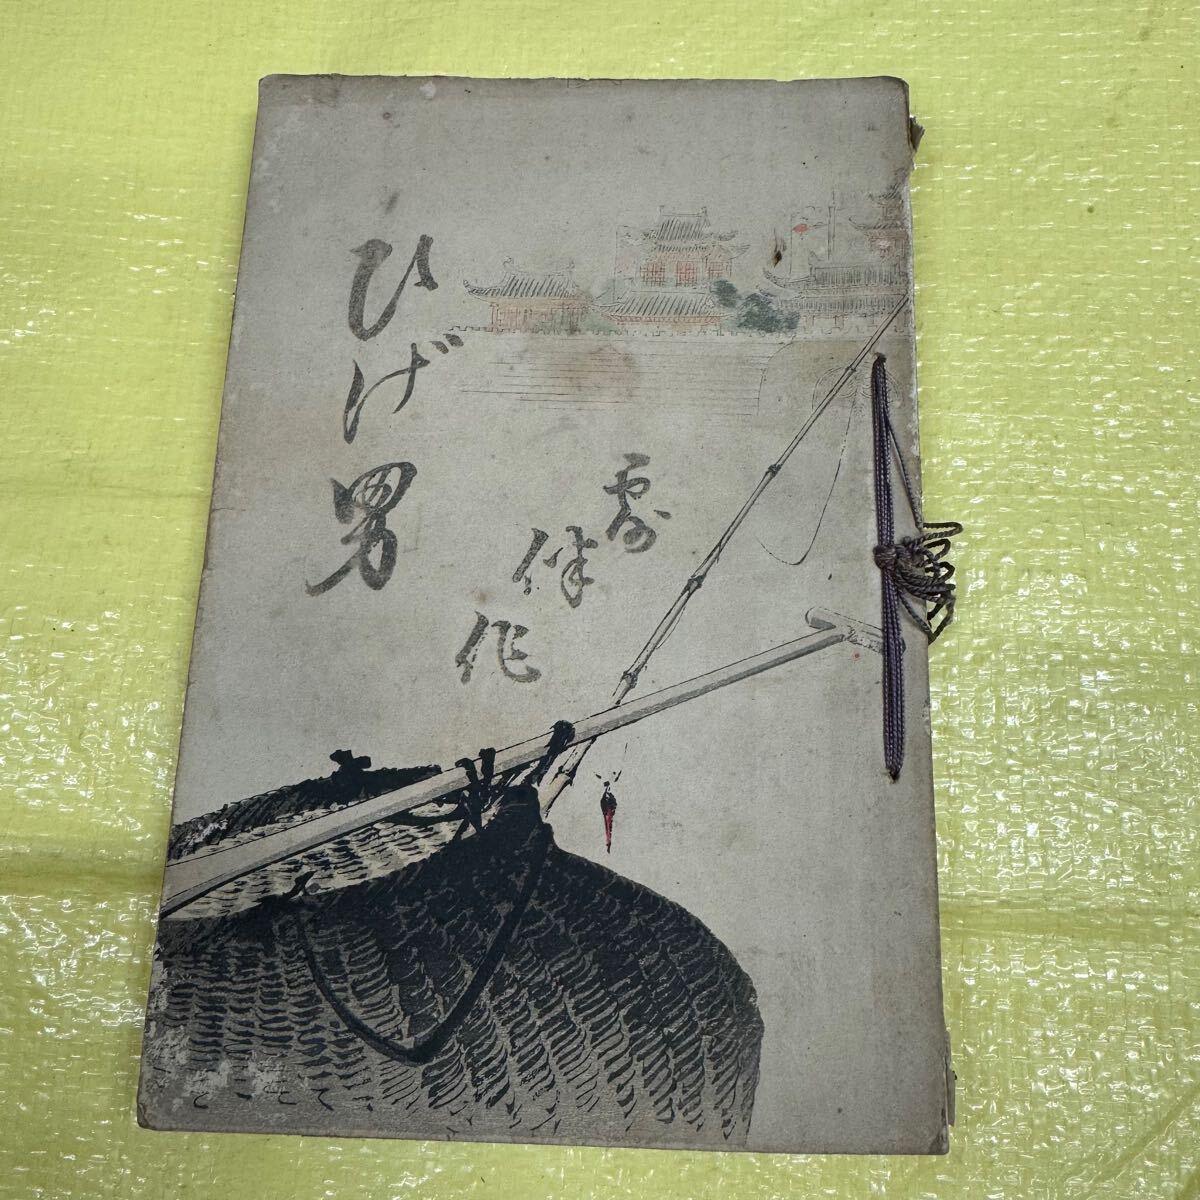 ひげ男
露伴作